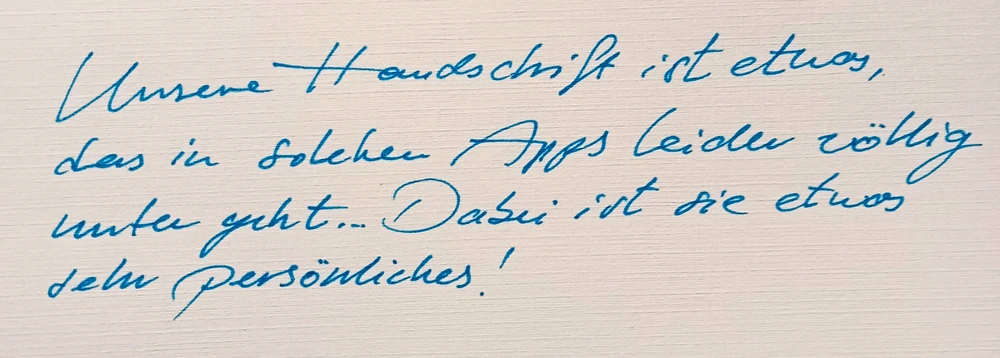 Unsere Handschrift ist etwas,
das in solchen Apps leider völlig
unter geht... Dabei ist sie etwas
sehr persönliches!